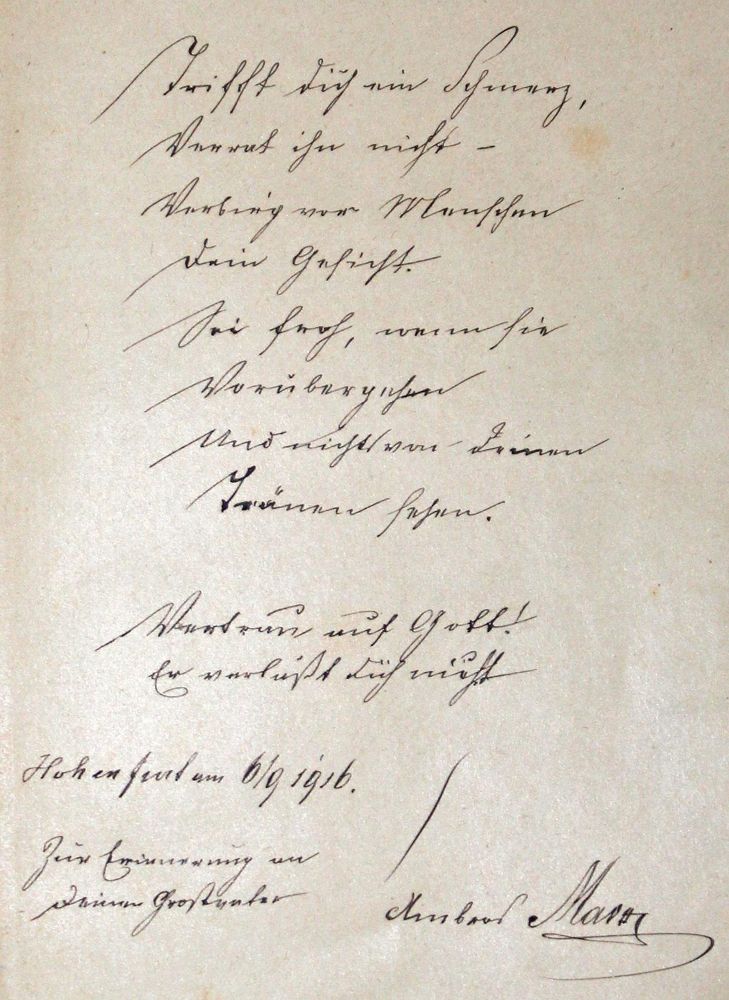 Trifft dich ein Schmerz,
Verrat ihn nicht –
Verbirg vor Menschen
Dein Gesicht.
Sei froh, wenn sie
Vorübergehen
Und nichts von deinen
Tränen sehen.
Vertrau auf Gott!
Er verläßt dich nicht
am 6/9 1916.
Zur Erinnerung an
Deinen Grosvater
Ambros